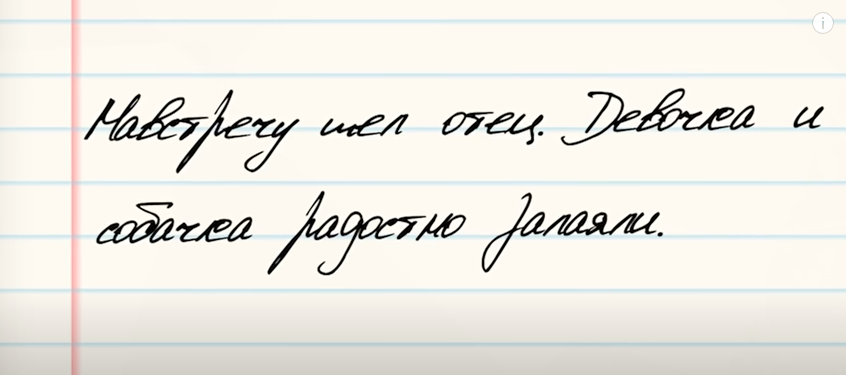 Навстречу шел отец. Девочка и
собачка радостно залаяли.